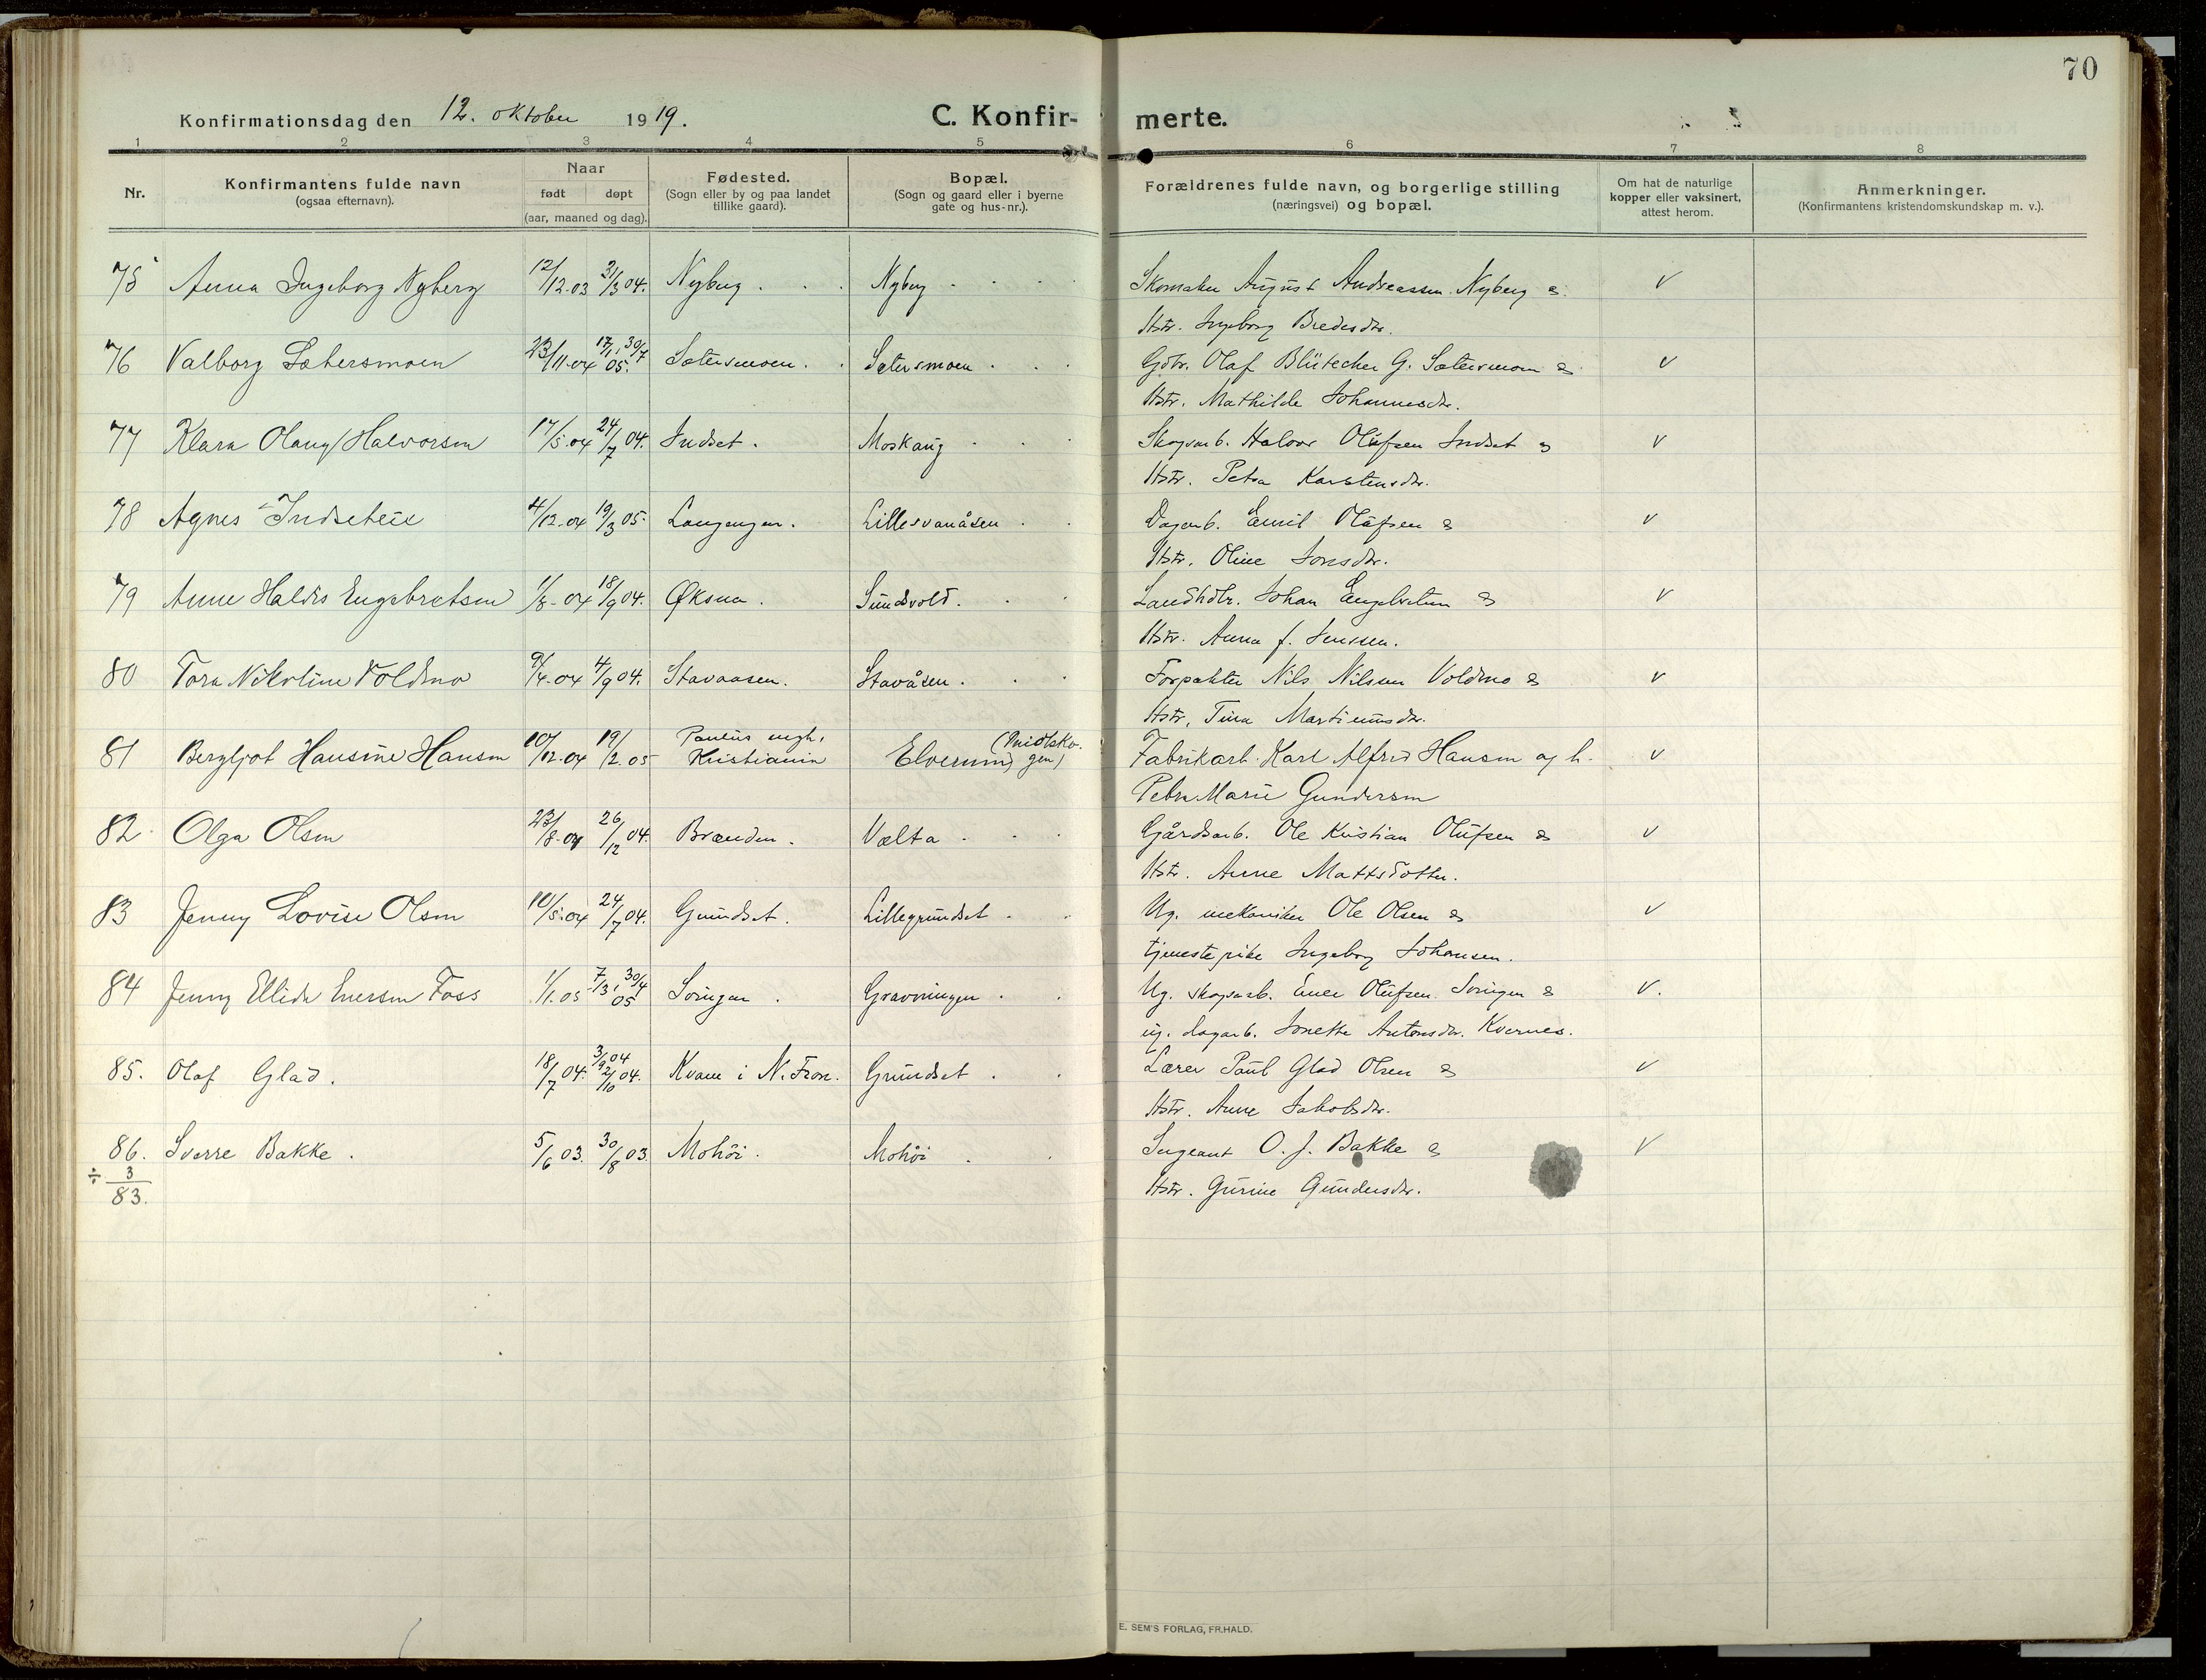 70
Konfirmationsdag den 12. oktober 1919.
C. Konfir- merte.
1 2 3 4 5 6 7 8
Nr.
Konfirmantens fulde navn
(ogsaa efternavn).
Naar
født døpt
(aar, maaned og dag).
Fødested.
(Sogn eller by og paa landet
tillike gaard).
Bopæl.
(Sogn og gaard eller i byerne
gate og hus-nr.).
Forældrenes fulde navn, og borgerlige stilling
(næringsvei) og bopæl.
Om hat de naturlige
kopper eller vaksinert,
attest herom.
Anmerkninger.
(Konfirmantens kristendomskundskap m. v.).
75 Anna Ingeborg Nyberg 12/12-03 31/3 04. Nyberg . . . Nyberg . . . . Skomaker August Andreassen Nyberg & v
Hstr. Ingeborg Bredesdtr.
76 Valborg Sætersmoen 23/11-04 17/1, 30/7 05. Sætersmoen . . Sætersmoen . . . Gdbr. Olaf Blütecher G. Sætersmoen & v
Hstr. Mathilde Johannesdtr.
77 Klara Olaug Halvorsen 17/5-04 24/7 04. Indset . Moskaug . . . Skogarb. Halvor Olufsen Indset & v
Hstr. Petra Karstensdtr.
78 Agnes Indseteie 4/12-04 19/3 05. Langengen . Lillesvanåsen . . Dagarb. Emil Olafsen & v
Hstr. Oline Jonsdtr.
79 Anne Haldis Engebretsen 1/8-04 18/9 04. Øksna . Sundsvold. . . Landhdlr. Johan Engebretsen & v
Hstr. Anna f. Jenssen.
80 Tora Nikoline Voldmo 9/4-04 4/9 04. Stavaasen. Stavåsen . . . Forpakter Nils Nilsen Voldmo & v
Hstr. Tina Martinusdtr.
81 Bergljot Hansine Hansen 10/12-04 19/2.05 Paulus mgh. Kristiania Elverum Fabrikarb. Karl Alfred Hansen og h. v
Petra Marie Gundersen
82 Olga Olsen 23/8-04 26/12 04. Brænden . Vælta . . . Gårdsarb. Ole Kristian Olufsen & v
Hstr. Anne Mattsdotter.
83 Jenny Lovise Olsen 10/5-04 24/7 04. Grundset . Lillegrundset . . Ug. mekaniker Ole Olsen & v
tjenestepike Ingeborg Johansen.
84 Jenny Ellida Enersen Foss 1/1.05 7/3, 30/4 05 Svingen . Gravningen . . Ug. skogarb. Ener Olufsen Svingen & v.
ug. dagarb. Jonette Antonsdtr. Kvernes.
85. Olaf Glad. 18/7 04. 3/9 04 2/10 04. Kvam i N. Fron. Grundset . . Lærer Paul Glad Olsen & v
Hstr. Anne Jakobsdtr.
86. Sverre Bakke . 5/6 03. 30/8 03. Mohöi . Mohöi . . Sergeant O. J. Bakke & v
÷ 3
83.
Hstr. Gurine Gundersdtr.
E. SEM'S FORLAG, FR.HALD.